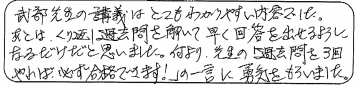 武部先生の講義はとてもわかりやすい内容でした。
あとは、くり返し過去問を解いて早く回答を出せるように
なるだけだと思いました。何より、先生の「過去問を3回
やれば必ず合格できます!」の一言に勇気をもらいました。